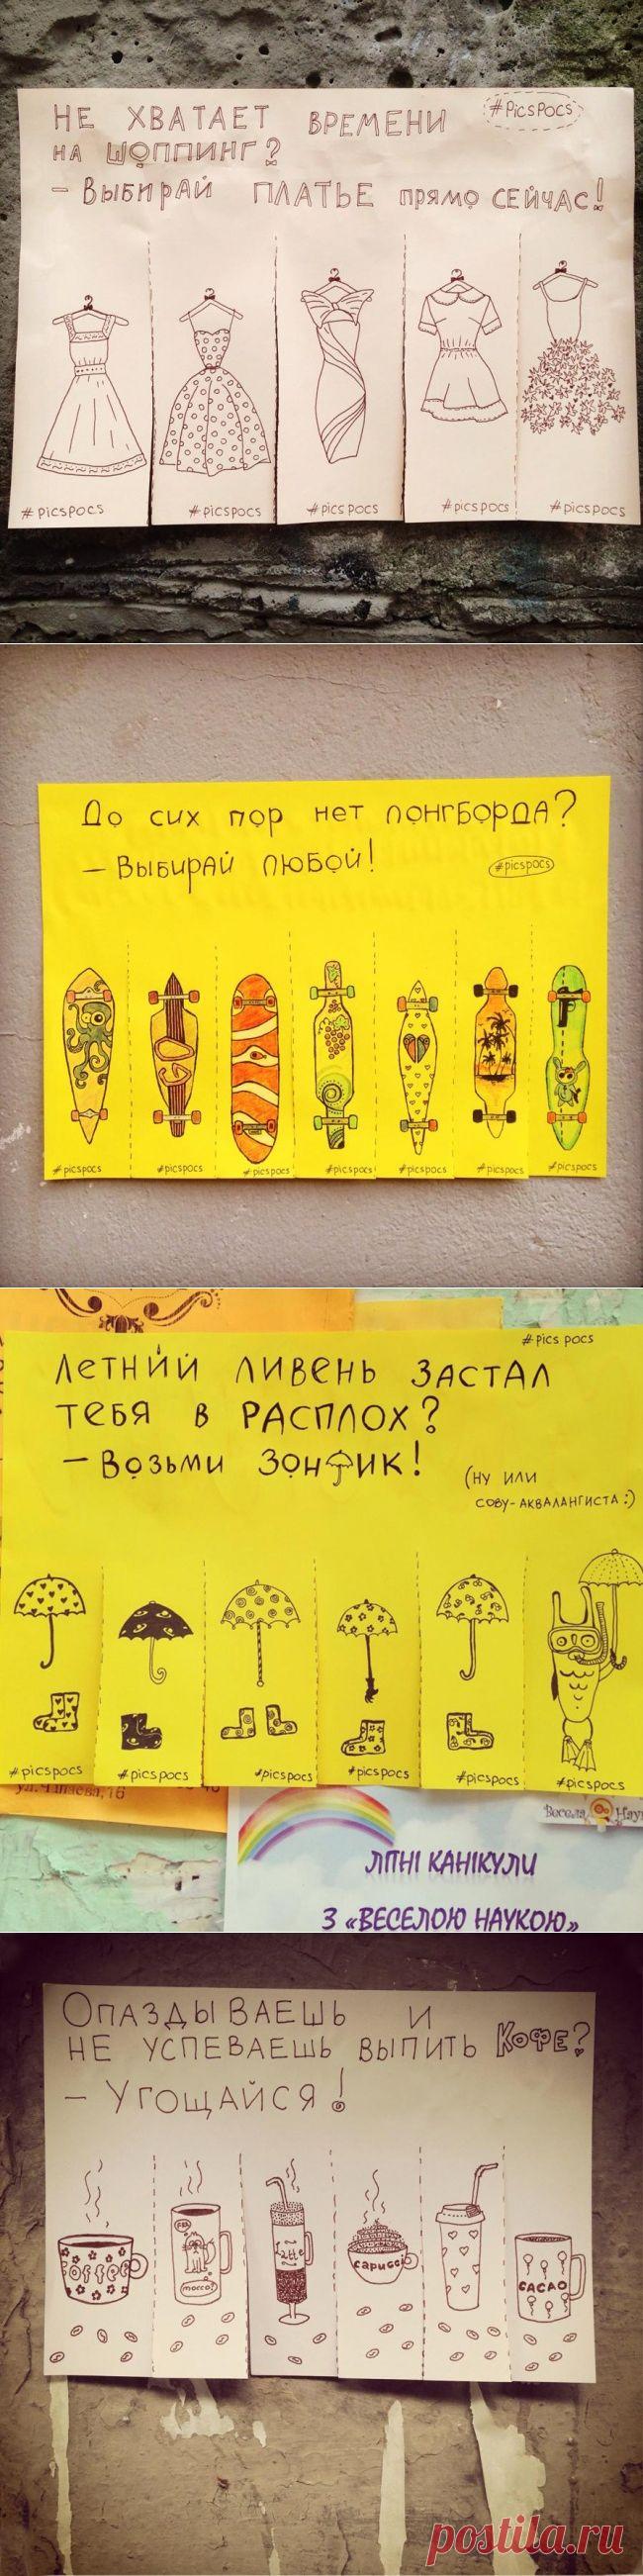 НЕ ХВАТАЕТ ВРЕМЕНИ
#PICSPOCS
НА ШОППИНГ?
- ВЫБИРАЙ ПЛАТЬЕ ПРЯМО СЕЙЧАС!
#PICSPOCS #PICSPOCS #PICSPOCS #PICSPOCS #PICSPOCS
ДО СИХ ПОР НЕТ ЛОНГБОРДА?
- ВЫБИРАЙ ЛЮБОЙ!
#picspocs
GO
#picspocs #picspocs #picspocs #picspocs #picspocs #picspocs #picspocs
#PICS POCS
ЛЕТНИЙ ЛИВЕНЬ ЗАСТАЛ
ТЕБЯ В РАСПЛОХ?
- ВОЗЬМИ ЗОНТИК!
(НУ ИЛИ
СОВУ-АКВАЛАНГИСТА:)
#picspocs #picspocs #picspocs #picspocs #picspocs #picspocs
Весела Наук
ЛІТНІ КАНІКУЛИ
З «ВЕСЕЛОЮ НАУКОЮ»
ОПАЗДЫВАЕШЬ И
НЕ УСПЕВАЕШЬ ВЫПИТЬ КОФЕ?
- УГОЩАЙСЯ!
COFFEE
MOCCO
Latte
capucci
CACAO
postila.ru